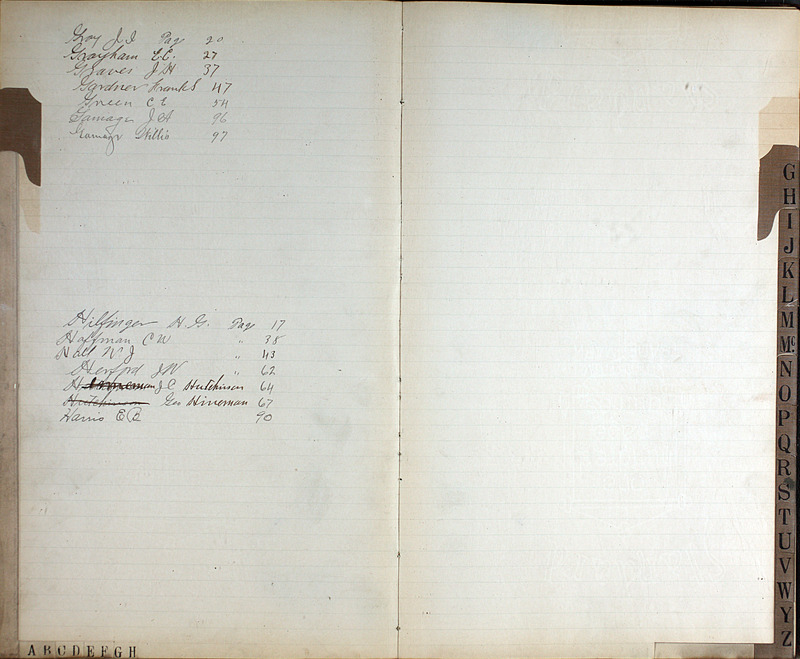 Gray J. J. Page 20
Grayham E. C. 27
Graves J H 37
Gardner Frank S 47
Green C E 54
Gamage J A 96
Gamage Willis 97
Hilfinger H. G. Page 17
Hoffman C W " 38
Hall W J " 43
Herford J W " 62
J C Hutchinson 64
Hutchinson Geo Hineman 67
Harris E B 90
A B C D E F G H
G
H
I
J
K
L
M
Mc
N
O
P
Q
R
S
T
U
V
W
Y
Z